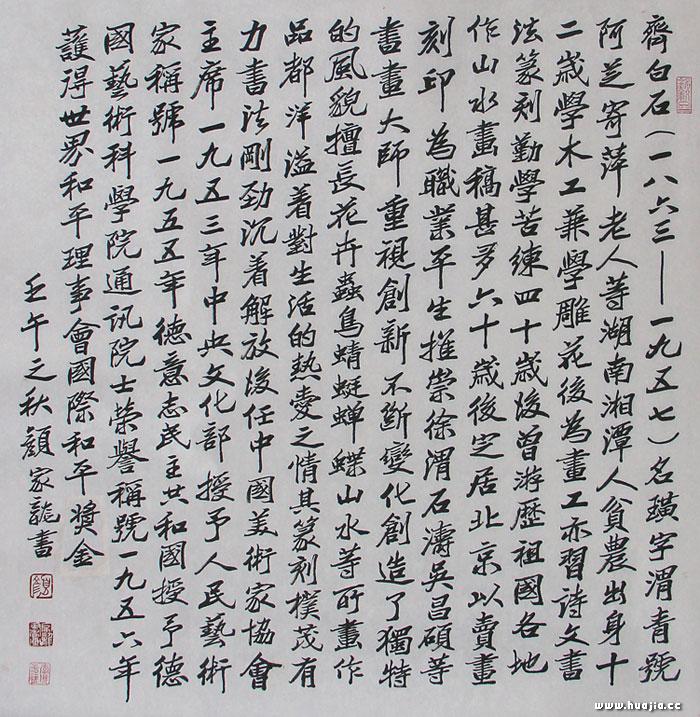 齊白石（一八六三——一九五七）名璜字渭青號
阿芝寄萍老人等湖南湘潭人貧農出身十
二歲學木工兼學雕花後為畫工亦習詩文書
法篆刻勤學苦練四十歲後曾游歷祖國各地
作山水畫稿甚多六十歲後定居北京以賣畫
刻印為職業平生推崇徐渭石濤吳昌碩等
書畫大師重視創新不斷變化創造了獨特
的風貌擅長花卉蟲鳥蜻蜓蟬蝶山水等所畫作
品都洋溢着對生活的熱愛之情其篆刻樸茂有
力書法剛勁沉着解放後任中國美術家協會
主席一九五三年中央文化部授予人民藝術
家稱號一九五五年德意志民主共和國授予德
國藝術科學院通訊院士榮譽稱號一九五六年
護得世界和平理事會國際和平獎金
壬午之秋顏家龍書
www.huajia.cc